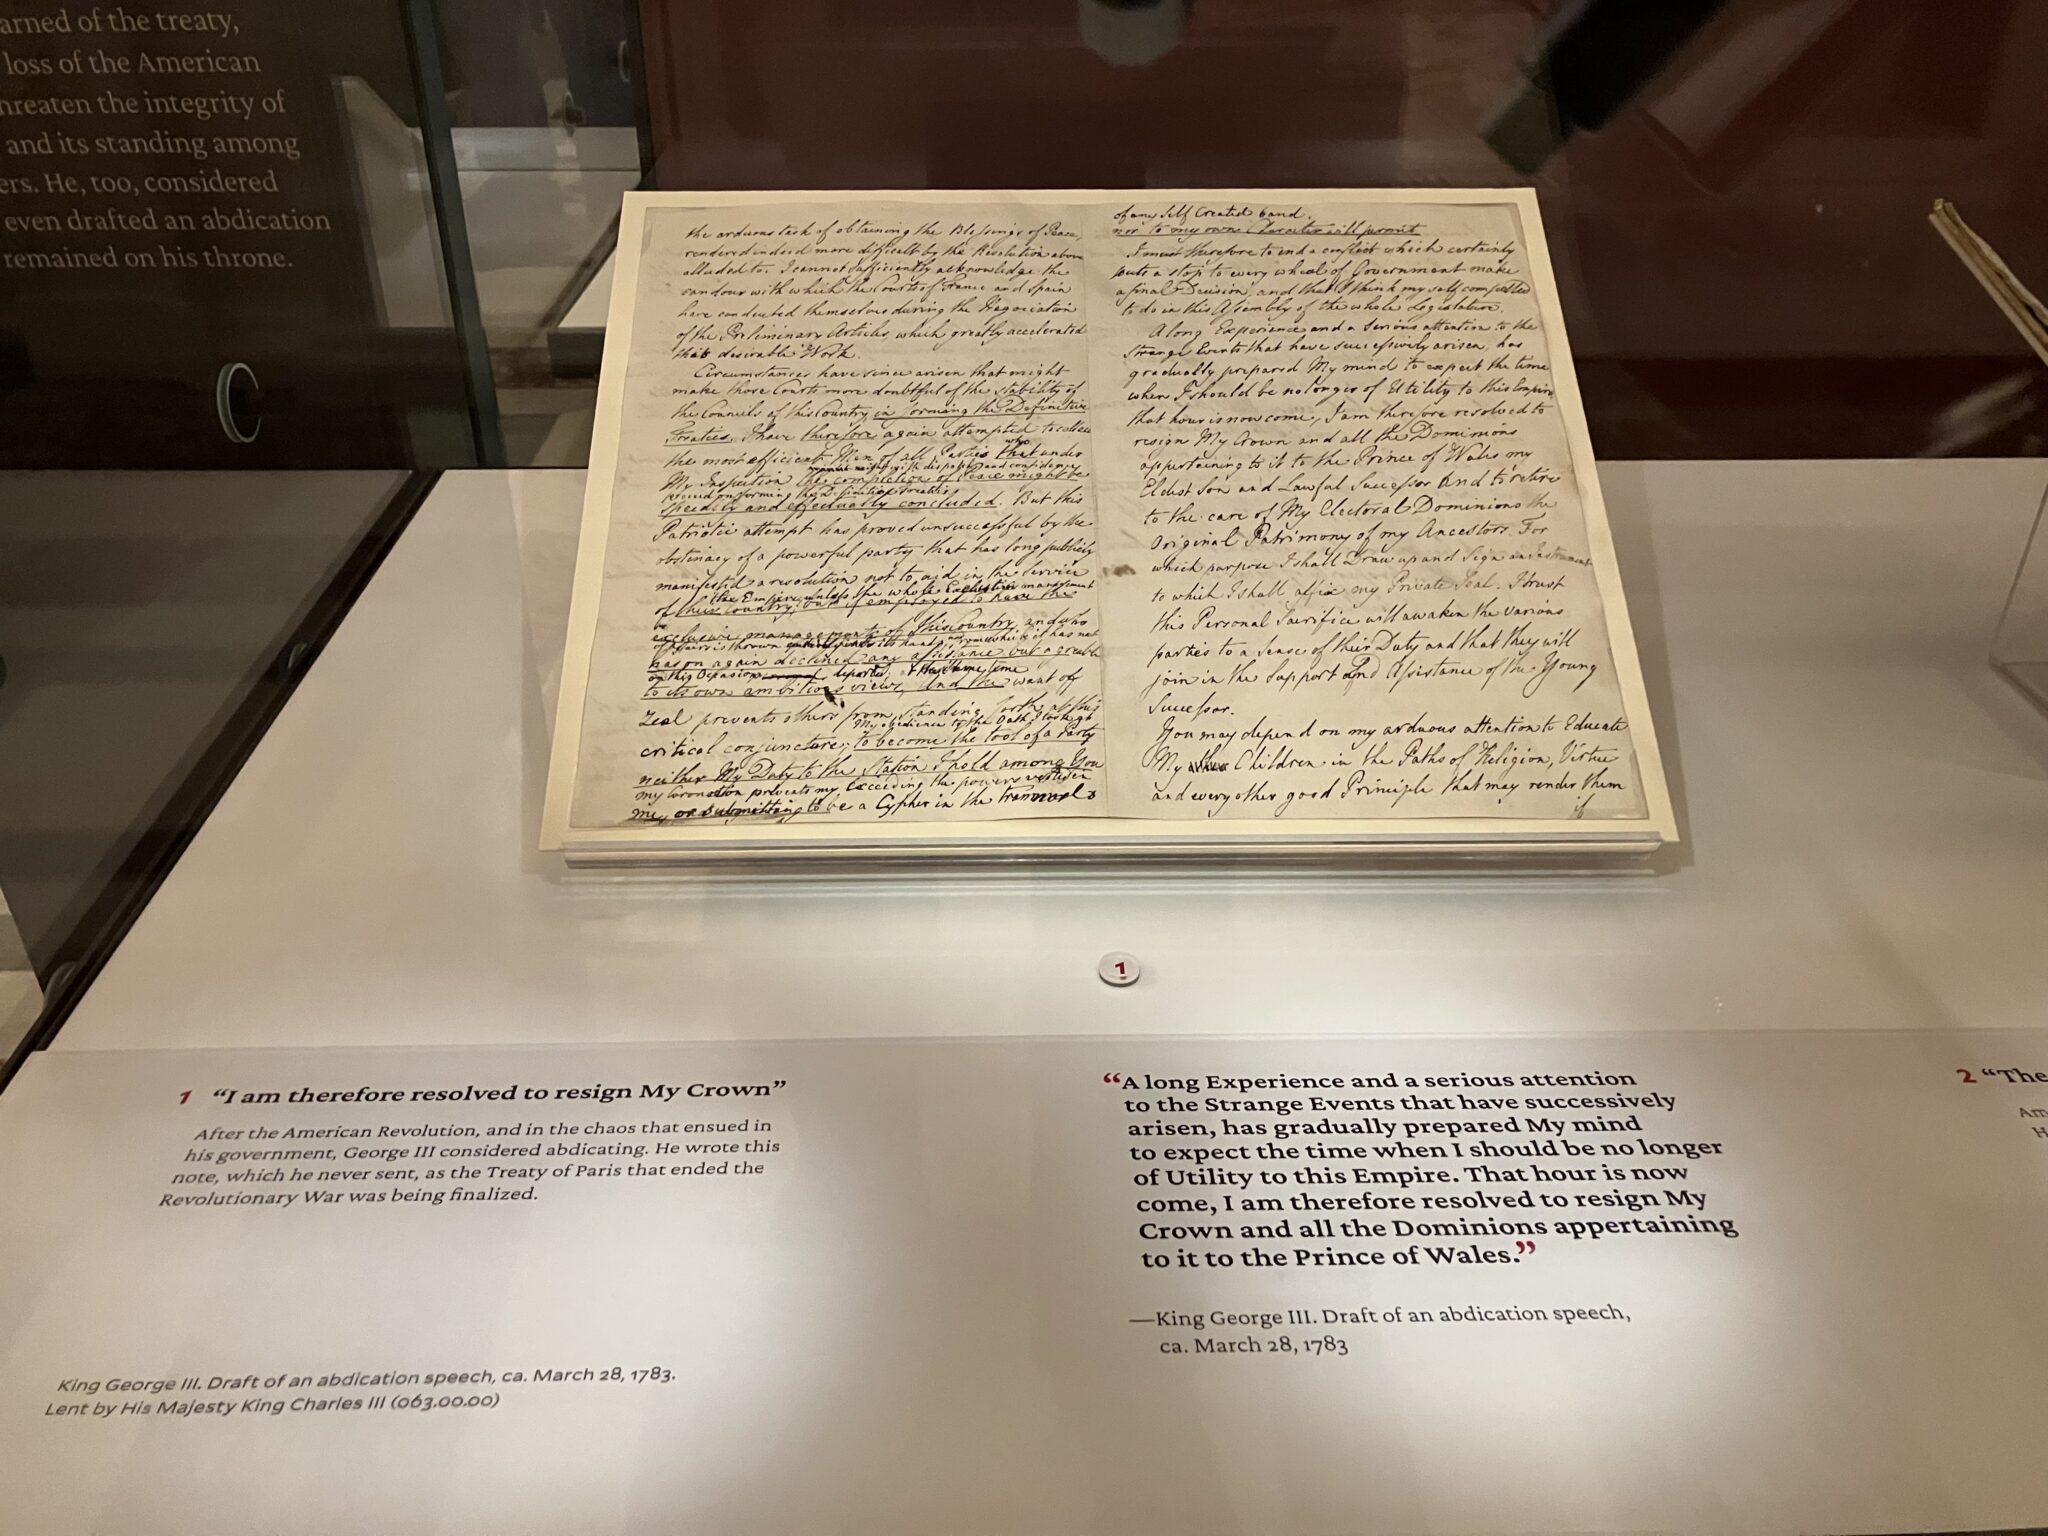 arned of the treaty,
loss of the American
hreaten the integrity of
and its standing among
ers. He, too, considered
even drafted an abdication
remained on his throne.
the arduous task of obtaining the Blessings of Peace,
rendered indeed more difficult by the Resolution above
alluded to. I cannot sufficiently acknowledge the
candour with which the Courts of France and Spain
have conducted themselves during the Negociation
of the Preliminary Articles, which greatly accelerated
that desirable Work.
Circumstances have since arisen that might
make those Courts more doubtful of the stability of
the Councils of this Country in forming the Definitive
Treaties. I have therefore again attempted to collect
the most efficient Men of all Parties that under
who
My Inspection the completion of Peace might be
with dispatch and confidence
proceed on forming the Definitive Treaties
speedily and effectually concluded. But this
Patriotic attempt has proved unsuccessful by the
obstinacy of a powerful party that has long publicly
manifested a resolution not to aid in the Service
the Empire unless the whole Executive management
of their Country, but if employed to have the
exclusive management of this Country, and who
of affairs is thrown entirely into its hands, from which it has not
has on again declined any assistance but agreable
on this Occasion departed, at the same time
to its own ambitious views, And the want of
Zeal prevents others from standing forth at this
My obedience to the Oath I took at
critical conjuncture; to become the tool of a Party
neither My Duty to the Station I hold among You
my Coronation prevents my exceeding the powers vested in
me, or submitting to be a Cypher in the trammels
of any self Created band.
nor to my own Character will permit
I must therefore to end a conflict which certainly
puts a stop to every wheel of Government make
a final Decision, and that I think myself compelled
to do in this Assembly of the whole Legislature.
A long Experience and a serious attention to the
Strange Events that have successively arisen, has
gradually prepared My mind to expect the time
when I should be no longer of Utility to this Empire,
that hour is now come, I am therefore resolved to
resign My Crown and all the Dominions
appertaining to it to the Prince of Wales my
Eldest Son and Lawful Successor And to retire
to the care of My Electoral Dominions the
Original Patrimony of my Ancestors. For
which purpose I shall Draw up and Sign an Instrument
to which I shall affix my Private Seal. I trust
this Personal Sacrifice will awaken the various
parties to a sense of their Duty and that they will
join in the Support And Assistance of the Young
Successor.
You may depend on my arduous attention to Educate
My Children in the Paths of Religion, Virtue
and every other good Principle that may render them
if
1
1 “I am therefore resolved to resign My Crown”
After the American Revolution, and in the chaos that ensued in
his government, George III considered abdicating. He wrote this
note, which he never sent, as the Treaty of Paris that ended the
Revolutionary War was being finalized.
King George III. Draft of an abdication speech, ca. March 28, 1783.
Lent by His Majesty King Charles III (063.00.00)
“A long Experience and a serious attention
to the Strange Events that have successively
arisen, has gradually prepared My mind
to expect the time when I should be no longer
of Utility to this Empire. That hour is now
come, I am therefore resolved to resign My
Crown and all the Dominions appertaining
to it to the Prince of Wales.”
—King George III. Draft of an abdication speech,
ca. March 28, 1783
2 “The
Am
H